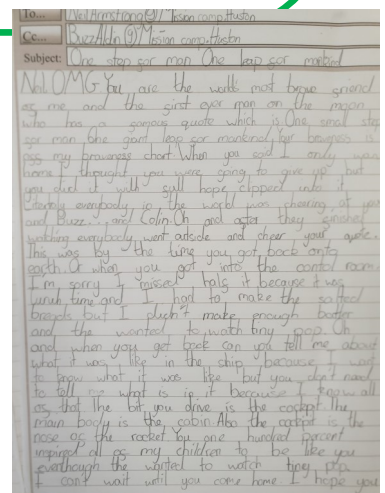 To... Neil Armstrong@Mission comp.Huston
Cc... Buzz Aldin@Mission comp.Huston
Subject: One step sor man One leap sor mankind
Neil OMG You are the worlds most brave sriend
os me and the sirst ever man on the moon
who has a samous quote which is One small step
sor man One giant leap sor mankind your braveness is
oss my braveness chart When you said I only
home I thought you were going to give up but
you did it with sull hope clipped into it.
Literally everybody in the world was cheering at you
and Buzz... and Colin. Oh and aster they sinished
watching everybody went outside and cheer your quote.
This was by the time you got back onto
earth. Or when you got into the contol room.
I'm sorry I missed hals it because it was
lunch time and I had to make the
but I didn't make enough batter
and the wanted to watch tiny pop. Oh
and when you get back can you tell me about
what it was like in the ship because I want
to know what it was like but you don't need
to tell me what is in it because I know all
os that. The bit you drive is the cockpit. The
main body is the cabin. Also the cockpit is the
nose os the rocket. You one hundred percent
inspired all os my children to be like you
eventhough the wanted to watch tiny pop.
I can't wait until you come home. I hope you